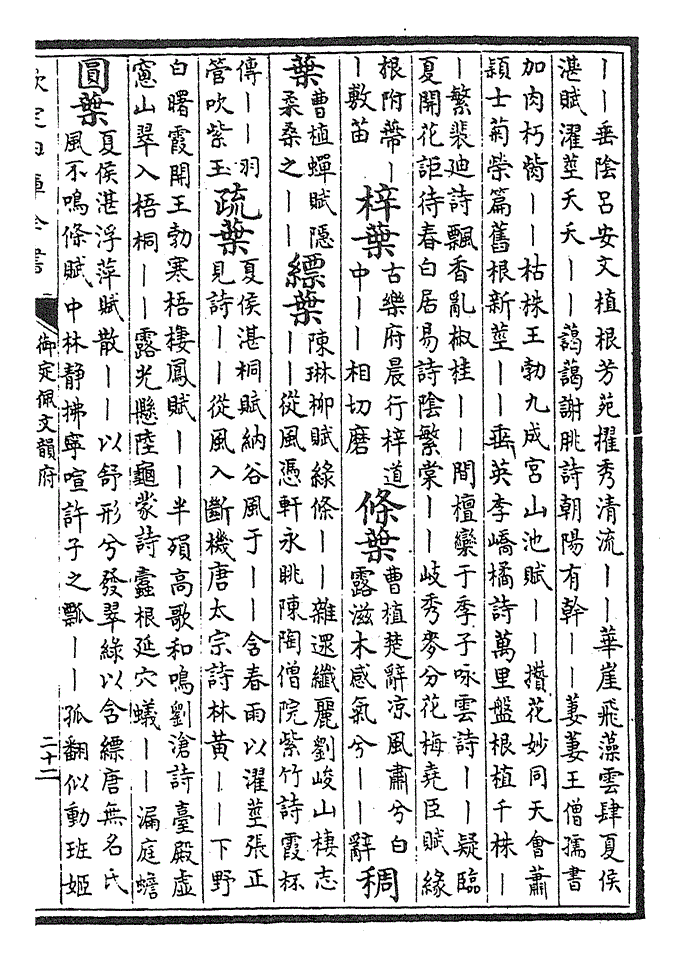 ｜｜垂陰呂安文植根芳苑擢秀清流｜｜華崖飛藻雲肆夏侯
湛賦濯莖夭夭｜｜藹藹謝朓詩朝陽有幹｜｜萋萋王僧孺書
加肉朽觜｜｜枯株王勃九成宮山池賦｜｜攢花妙同天會蕭
穎士菊榮篇舊根新莖｜｜垂英李嶠橘詩萬里盤根植千株｜
｜繁裴廸詩飄香亂椒桂｜｜間檀欒于季子咏雲詩｜｜疑臨
夏開花詎待春白居易詩陰繁棠｜｜岐秀麥分花梅堯臣賦緣
根附蔕｜
｜敷苗
梓葉
古樂府晨行梓道
中｜｜相切磨
條葉
曹植楚辭凉風肅兮白
露滋木感氣兮｜｜辭
稠
葉
曹植蟬賦隱
柔桑之｜｜
縹葉
陳琳柳賦綠條｜｜雜遝纖麗劉峻山棲志
｜｜從風憑軒永眺陳陶僧院紫竹詩霞杯
傳｜｜羽
管吹紫玉
疏葉
夏侯湛桐賦納谷風于｜｜含春雨以濯莖張正
見詩｜｜從風入斷機唐太宗詩林黄｜｜下野
白曙霞開王勃寒梧棲鳳賦｜｜半殞高歌和鳴劉滄詩臺殿虛
窻山翠入梧桐｜｜露光懸陸龜蒙詩蠧根延穴蟻｜｜漏庭蟾
圓葉
夏侯湛浮萍賦散｜｜以舒形兮發翠綠以含縹唐無名氏
風不鳴條賦中林静拂寧喧許子之瓢｜｜孤翻似動班姬
欽定四庫全書
御定佩文韻府
二十二